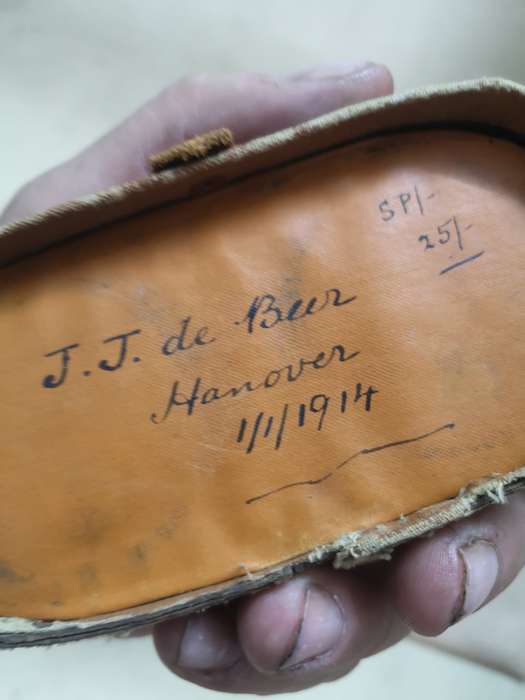 SP/-
25/-
J. J. de Beer
Hanover
1/1/1914